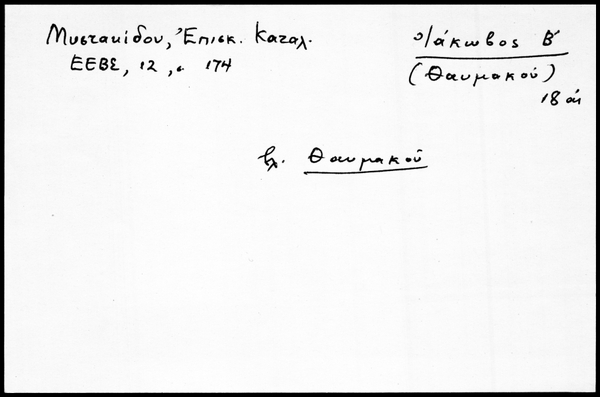 Μυστακίδου, Ἐπισκ. Καταλ.
ΕΕΒΣ, 12, σ. 174
Ἰάκωβος Β΄
(Θαυμακοῦ)
18 αἰ
βλ. Θαυμακοῦ